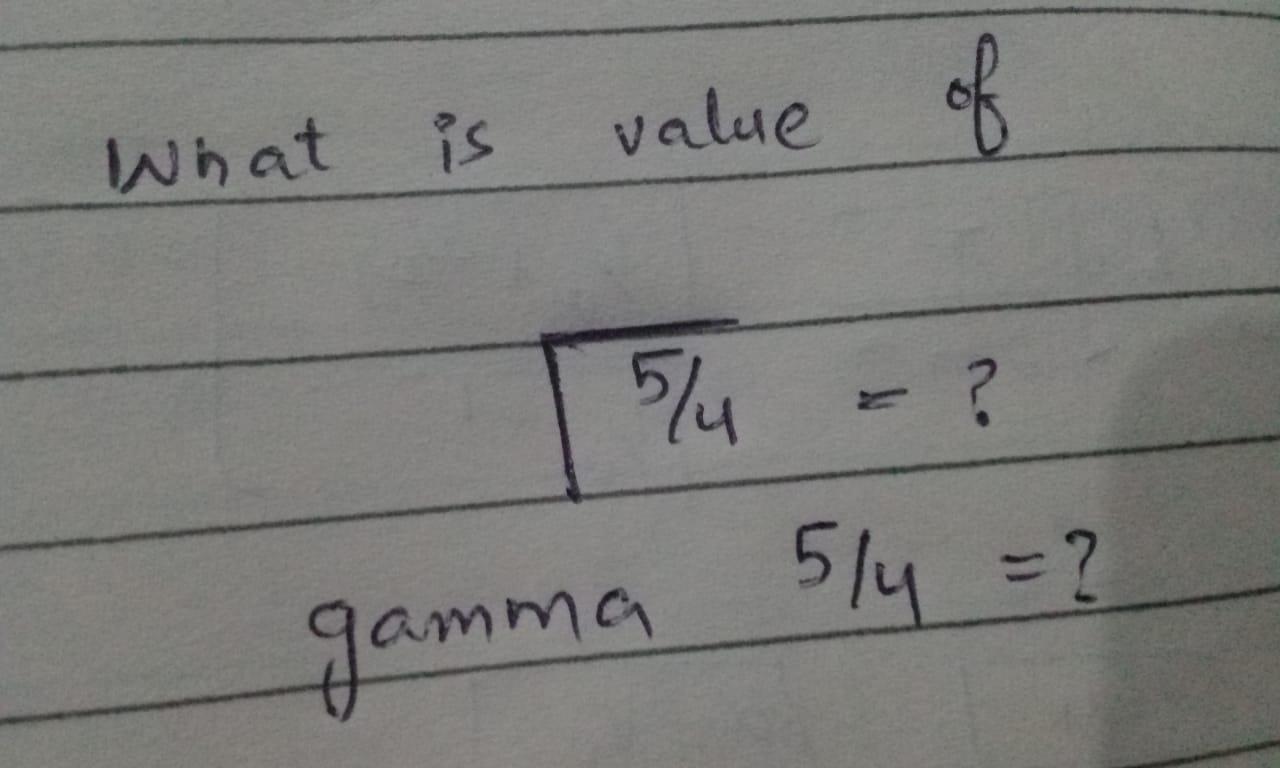 What is value of
Γ5/4 = ?
gamma 5/4 = ?